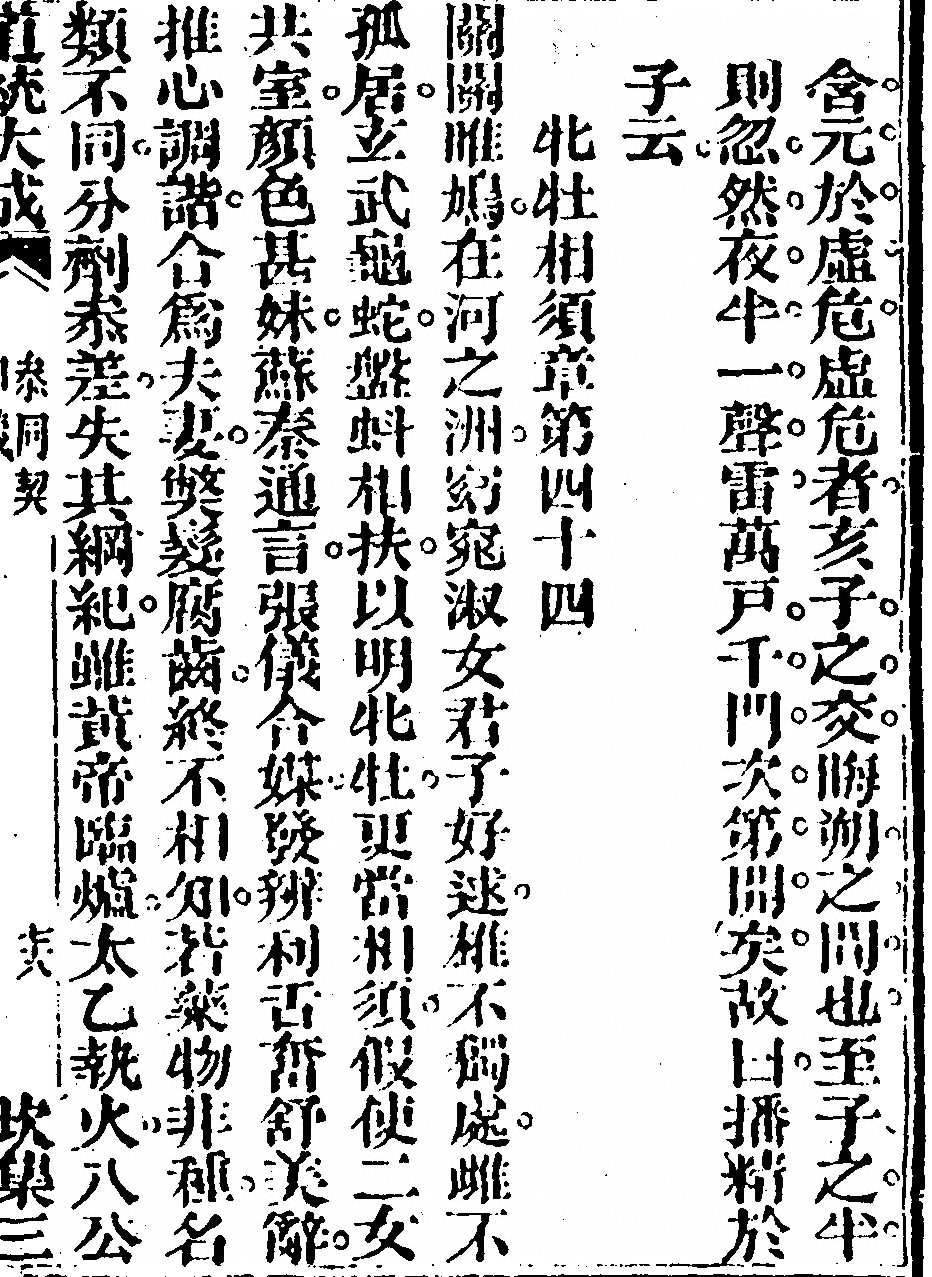 含元於虛危虛危者亥子之交晦朔之間也至子之半
則忽然夜半一聲雷萬戸千門次第開矣故曰播精於
子云
牝牡相須章第四十四
關關雎鳩在河之洲窈窕淑女君子好逑雄不獨處雌不
孤居玄武龜蛇盤蚪相扶以明牝牡更當相須假使二女
共室顏色甚姝蘇秦通言張儀合媒發辨利舌奮舒美辭
推心調諧合爲夫妻獘髮腐齒終不相知若藥物非種名
類不同分劑叅差失其綱紀雖黃帝臨爐太乙執火八公
道統大成
叅同契
坎集三